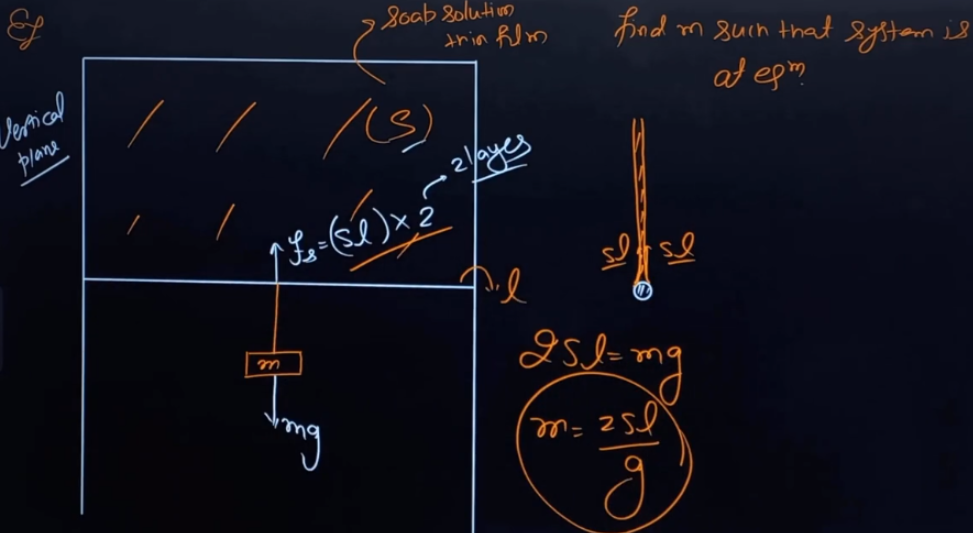 Eg
soap solution
thin film
find m such that system is
at eqm.
Vertical
plane
(S)
2 layes
fs=(sl)×2
l
sl sl
m
mg
2sl=mg
m=2sl/g